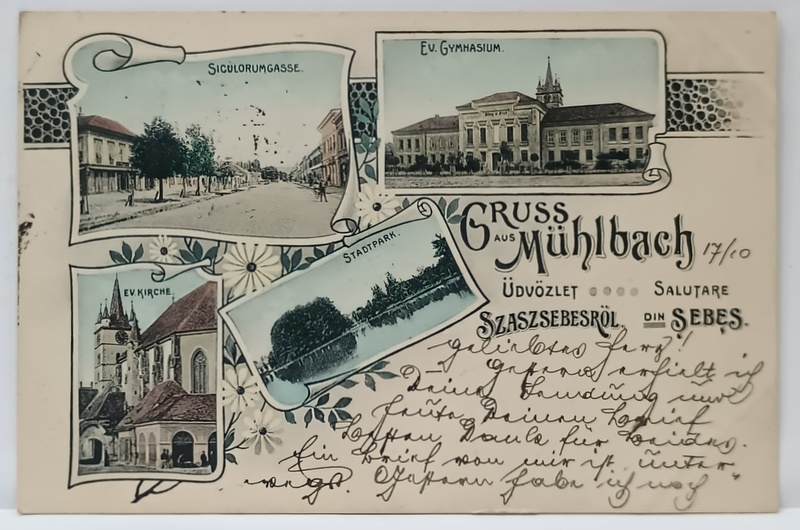 SICULORUMGASSE.
EV. GYMNASIUM.
GRUSS
AUS MÜHLBACH
17/10
ÜDVÖZLET SALUTARE
SZASZSEBESRÖL, DIN SEBEȘ.
STADTPARK.
EV. KIRCHE.
geliebtes Herz!
Gestern erhielt ich
Deine Sendung und
heute Deinen Brief
Besten Dank für beides.
Ein Brief von mir ist unter
wegs. Gestern habe ich noch